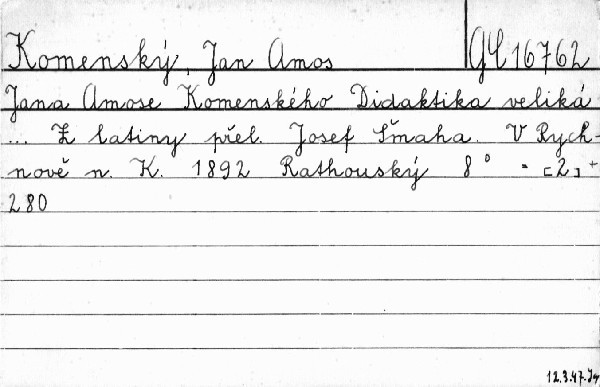 Komenský, Jan Amos
GC 16762
Jana Amose Komenského Didaktika veliká
... Z latiny přel. Josef Šmaha. V Rych-
nově n. K. 1892 Rathouský 8° - [2] +
280
12.3.47.